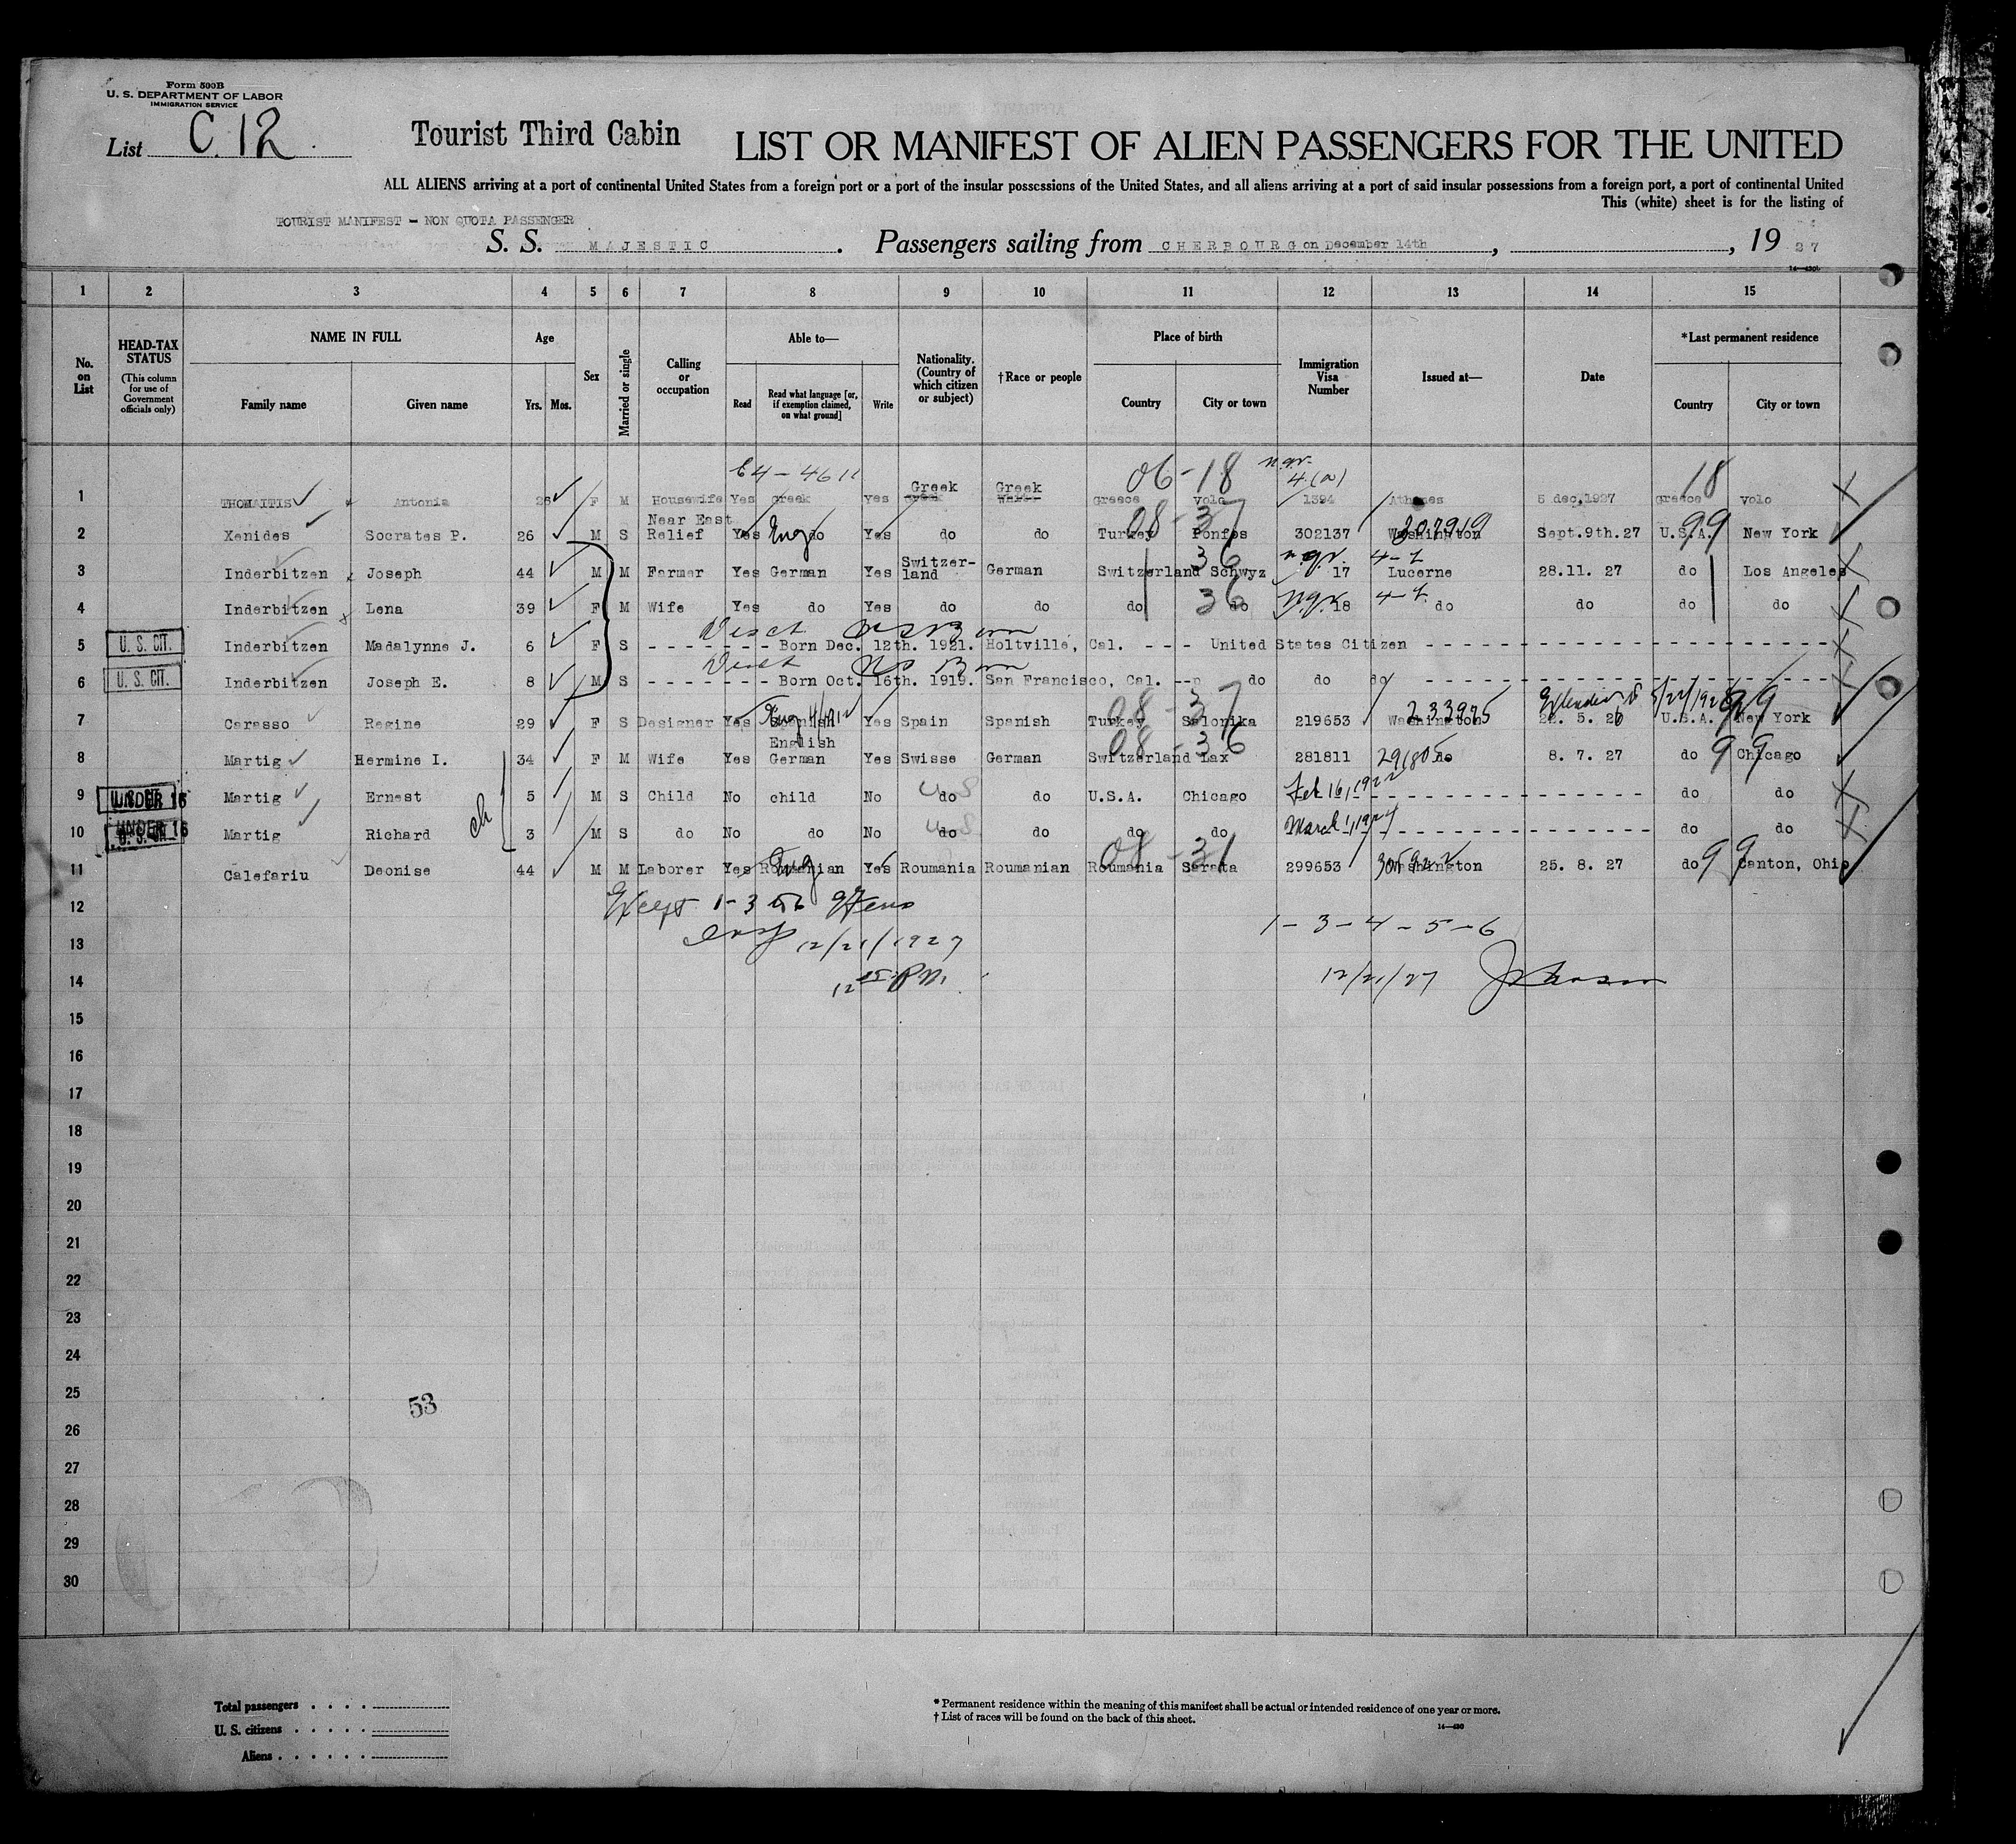 Form 500B
U. S. DEPARTMENT OF LABOR
IMMIGRATION SERVICE
List C.12
Tourist Third Cabin
LIST OR MANIFEST OF ALIEN PASSENGERS FOR THE UNITED
ALL ALIENS arriving at a port of continental United States from a foreign port or a port of the insular possessions of the United States, and all aliens arriving at a port of said insular possessions from a foreign port, a port of continental United
This (white) sheet is for the listing of
TOURIST MANIFEST - NON QUOTA PASSENGER
S. S. MAJESTIC. Passengers sailing from CHERBOURG on December 14th, , 19 27
1 2 3 4 5 6 7 8 9 10 11 12 13 14 15
No. on List
HEAD-TAX STATUS
(This column for use of Government officials only)
NAME IN FULL
Family name Given name
Age
Yrs. Mos.
Sex
Married or single
Calling or occupation
Able to—
Read
Read what language [or, if exemption claimed, on what ground]
Write
Nationality. (Country of which citizen or subject)
†Race or people
Place of birth
Country City or town
Immigration Visa Number
Issued at—
Date
*Last permanent residence
Country City or town
64-4611 06-18 n.q.v. 4(a) 18
1 THOMAITIS Antonia 26 F M Housewife Yes greek Yes Greek Greek Greece Volo 1394 Athenes 5 dec,1927 greece volo
2 Xenides Socrates P. 26 M S Near East Relief Yes Eng do Yes do do Turkey 08-37 Ponfos 302137 Washington 307919 Sept.9th.27 U.S.A. 99 New York
3 Inderbitzen Joseph 44 M M Farmer Yes German Yes Switzer-land German Switzerland Schwyz 36 n.q.v. 17 4-2 Lucerne 28.11. 27 do Los Angeles
4 Inderbitzen Lena 39 F M Wife Yes do Yes do do do 36 do n.q.v. 18 do do do do
5 U. S. CIT. Inderbitzen Madalynne J. 6 F S - - - - - - - Born Dec. 12th. 1921. Holtville, Cal. - - - United States Citizen
6 U. S. CIT. Inderbitzen Joseph E. 8 M S - - - - - - - Born Oct. 16th. 1919. San Francisco, Cal. do do do
7 Carasso Regine 29 F S Designer Yes Spanish Yes Spain Spanish Turkey 08-37 Salonika 219653 Washington 233975 22. 5. 26 U.S.A. 99 New York
8 Martig Hermine I. 34 F M Wife Yes English German Yes Swisse German Switzerland 08-36 Lax 281811 do 8. 7. 27 do 99 Chicago
9 UNDER 16 Martig Ernest 5 M S Child No child No do US do U.S.A. Chicago Feb 16, 1922 do do
10 UNDER 16 Martig Richard 3 M S do No do No do US do do do March 1, 1924 do do
ch
11 Calefariu Deonise 44 M M Laborer Yes Roumanian Eng Yes Roumania Roumanian Roumania 08-31 Sarata 299653 Washington 25. 8. 27 do 99 Canton, Ohio
12 Except 1-3
13 12/21/1927 1-3-4-5-6
14 12 PM. 12/21/27
15
16
17
18
19
20
21
22
23
24
25
53
26
27
28
29
30
Total passengers . . . .
U. S. citizens . . . . .
Aliens . . . . . .
* Permanent residence within the meaning of this manifest shall be actual or intended residence of one year or more.
† List of races will be found on the back of this sheet.
14—430